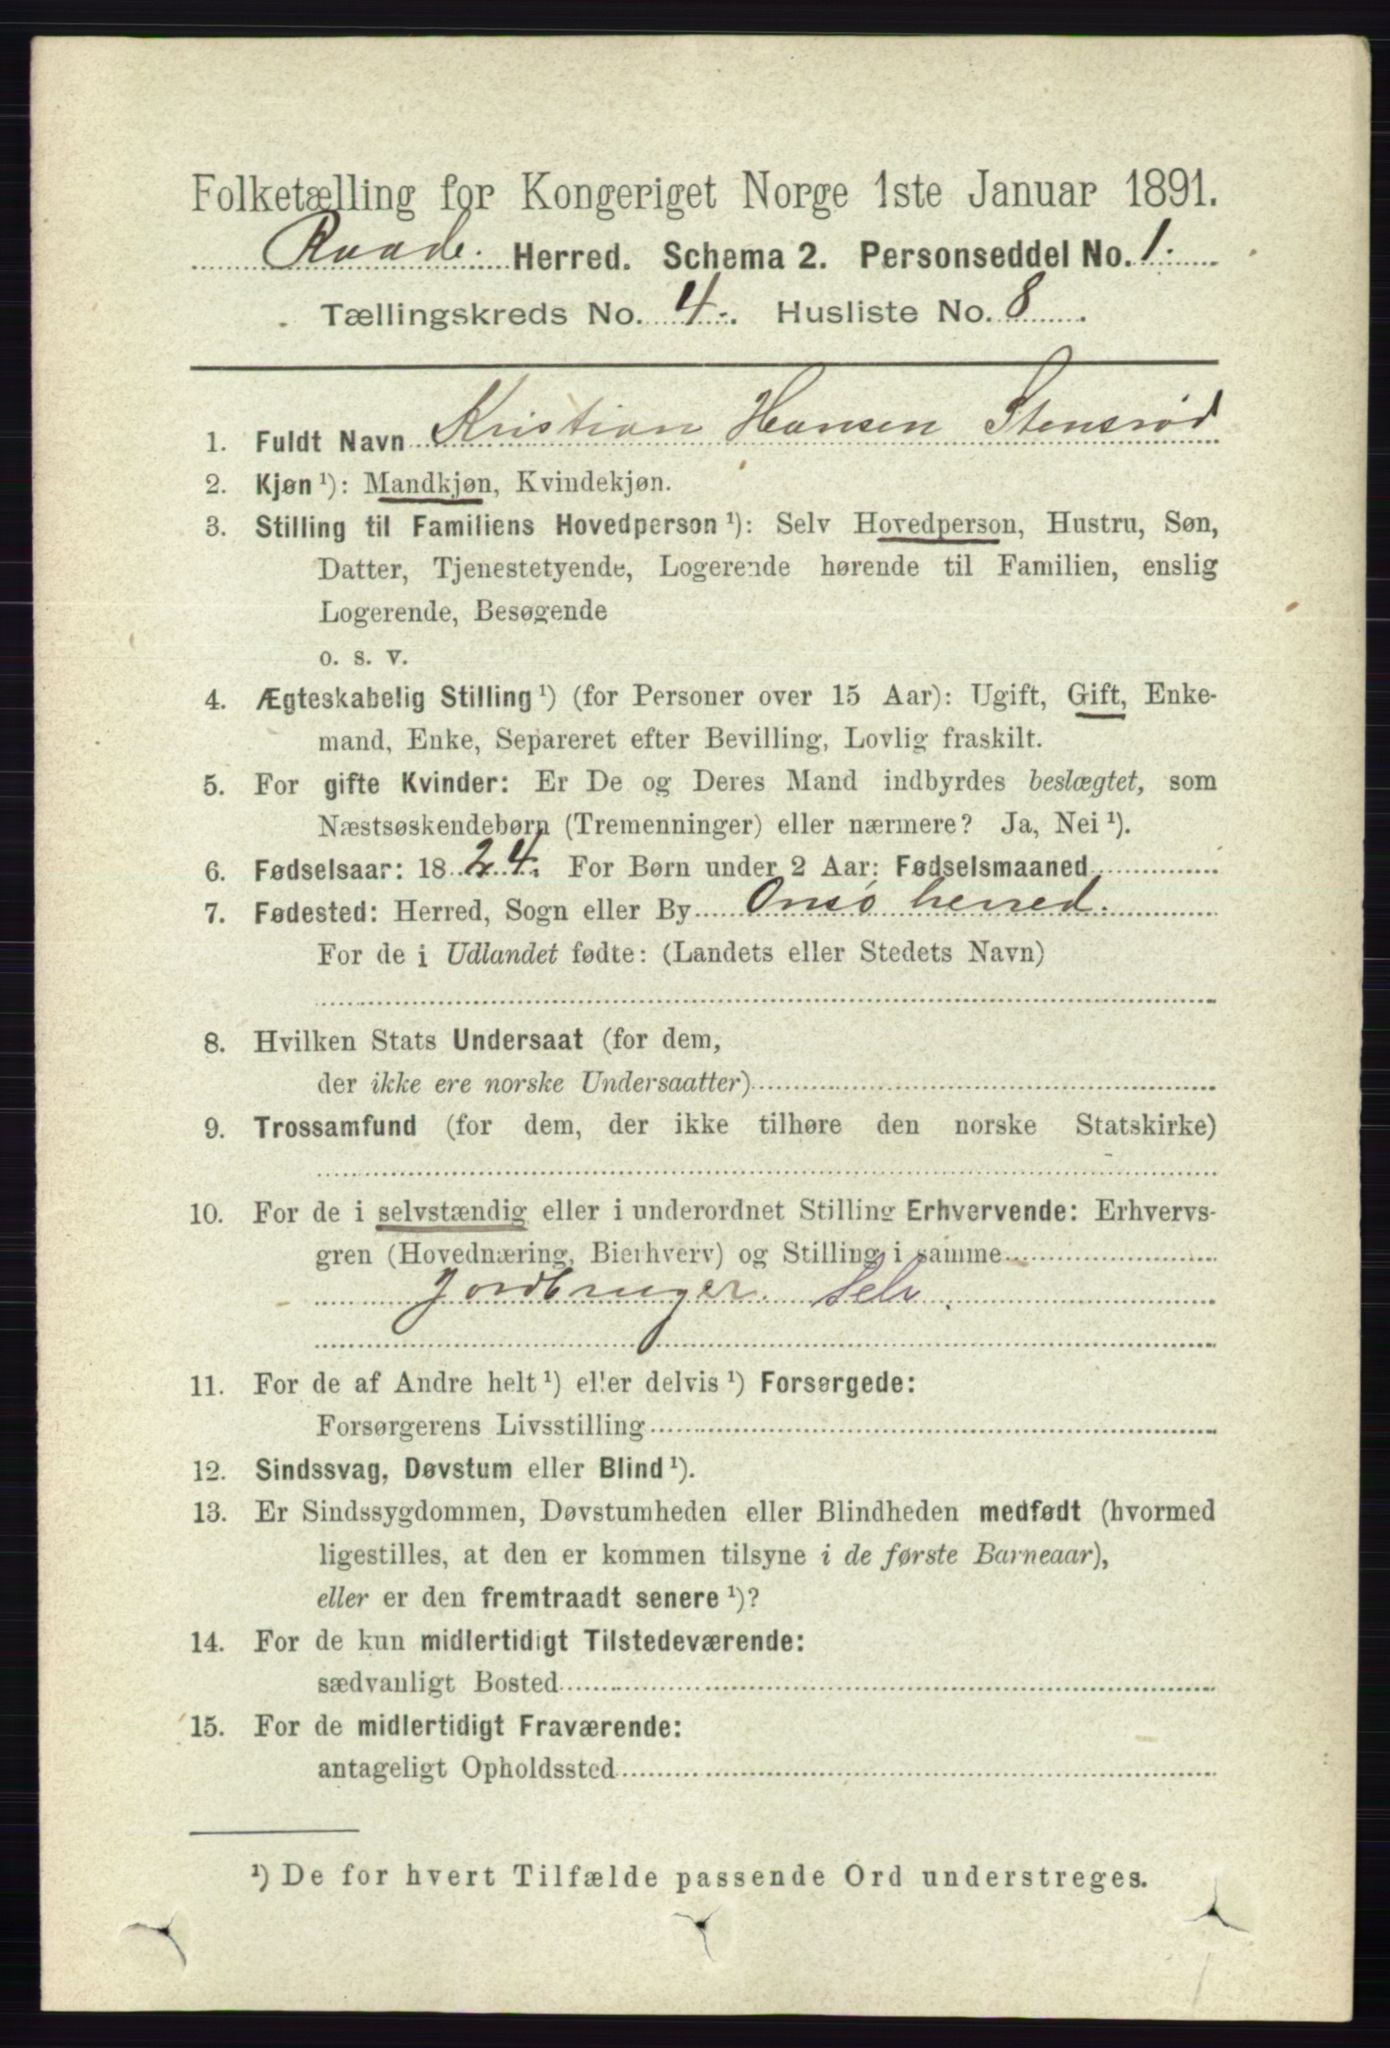 Folketælling for Kongeriget Norge 1ste Januar 1891.
Raade. Herred. Schema 2. Personseddel No. 1.
Tællingskreds No. 4. Husliste No. 8.
1. Fuldt Navn Kristian Hansen Stensrød
2. Kjøn ¹): Mandkjøn, Kvindekjøn.
3. Stilling til Familiens Hovedperson ¹): Selv Hovedperson, Hustru, Søn,
Datter, Tjenestetyende, Logerende hørende til Familien, enslig
Logerende, Besøgende
o. s. v.
4. Ægteskabelig Stilling ¹) (for Personer over 15 Aar): Ugift, Gift, Enke-
mand, Enke, Separeret efter Bevilling, Lovlig fraskilt.
5. For gifte Kvinder: Er De og Deres Mand indbyrdes beslægtet, som
Næstsøskendebørn (Tremenninger) eller nærmere? Ja, Nei ¹).
6. Fødselsaar: 1824. For Børn under 2 Aar: Fødselsmaaned
7. Fødested: Herred, Sogn eller By Onsø herred.
For de i Udlandet fødte: (Landets eller Stedets Navn)
8. Hvilken Stats Undersaat (for dem,
der ikke ere norske Undersaatter)
9. Trossamfund (for dem, der ikke tilhøre den norske Statskirke)
10. For de i selvstændig eller i underordnet Stilling Erhvervende: Erhvervs-
gren (Hovednæring, Bierhverv) og Stilling i samme
Jordbruger. Selv.
11. For de af Andre helt ¹) eller delvis ¹) Forsørgede:
Forsørgerens Livsstilling
12. Sindssvag, Døvstum eller Blind ¹).
13. Er Sindssygdommen, Døvstumheden eller Blindheden medfødt (hvormed
ligestilles, at den er kommen tilsyne i de første Barneaar),
eller er den fremtraadt senere ¹)?
14. For de kun midlertidigt Tilstedeværende:
sædvanligt Bosted
15. For de midlertidigt Fraværende:
antageligt Opholdssted
¹) De for hvert Tilfælde passende Ord understreges.